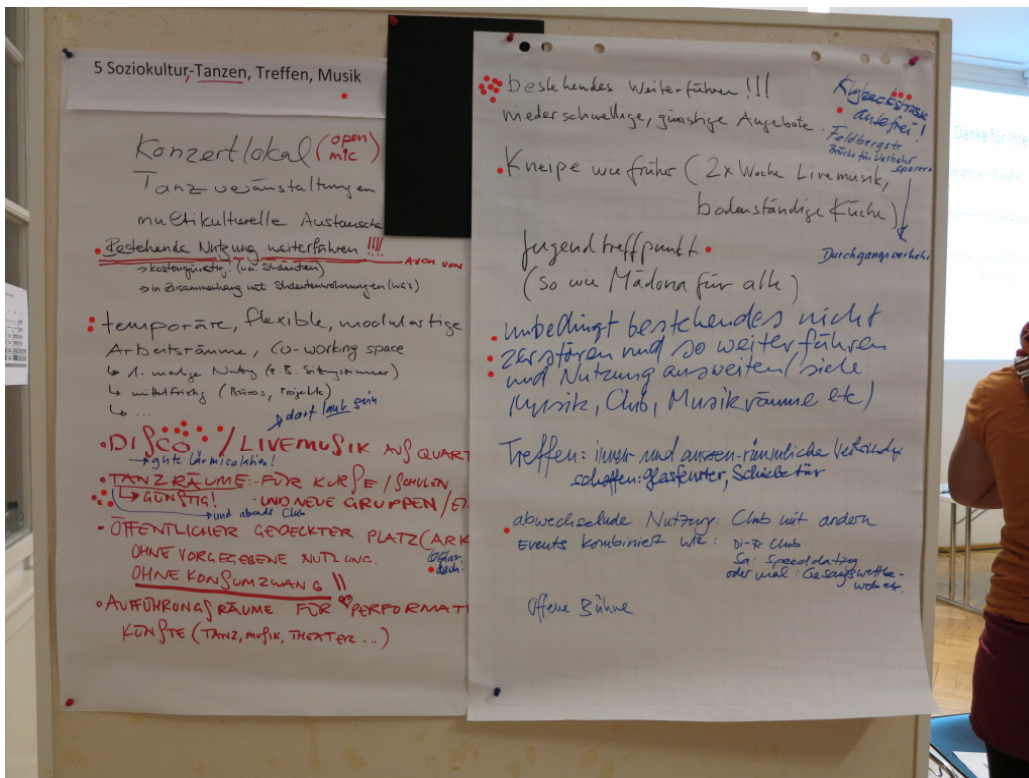 5 Soziokultur,-Tanzen, Treffen, Musik
Konzertlokal (open mic)
Tanzveranstaltungen
multikulturelle Austausche
Bestehende Nutzung weiterführen !!!!
AUCH VON
→ kostengünstig! (v.a. Studenten)
→ in Zusammenhang mit Studentenwohnungen (WG's)
temporäre, flexible, modulartige
Arbeitsräume, Co-working space
↳ 1-malige Nutzung (z.B. Sitzungszimmer)
↳ mittelfristig (Büros, Projekte)
↳ ...
→ darf laut sein
• DISCO / LIVEMUSIK AUS QUART
→ gute Lärmisolation!
• TANZRÄUME: - FÜR KURSE / SCHULEN
↳ GÜNSTIG! - UND NEUE GRUPPEN /
→ und abends Club
• ÖFFENTLICHER GEDECKTER PLATZ (ARK
OHNE VORGEGEBENE NUTZUNG.
Glas-
dach
OHNE KONSUMZWANG !!
• AUFFÜHRUNGSRÄUME FÜR PERFORMATI
KÜNSTE (TANZ, MUSIK, THEATER ...)
bestehendes Weiterführen !!!
niederschwellige, günstige Angebote
Kneipe wie früher (2x Woche Livemusik,
bodenständige Küche)
Jugendtreffpunkt
(so wie Mädona für alle)
unbedingt bestehendes nicht
zerstören und so weiter führen
und Nutzung ausweiten (siehe
Musik, Club, Musikräume etc)
Treffen: innen und aussen-räumliche
schaffen: Glasfenster, Schiebetür
abwechselnde Nutzung: Club mit andern
Events kombiniert wie: Di-Fr Club
Sa: Speeddating
oder mal: Gesangswettbe-
werb etc.
Offene Bühne
Klybeckstrasse
autofrei!
Feldbergstr
Brücke für Verkehr
sperren
Durchgangsverkehr
Danke für Ihre